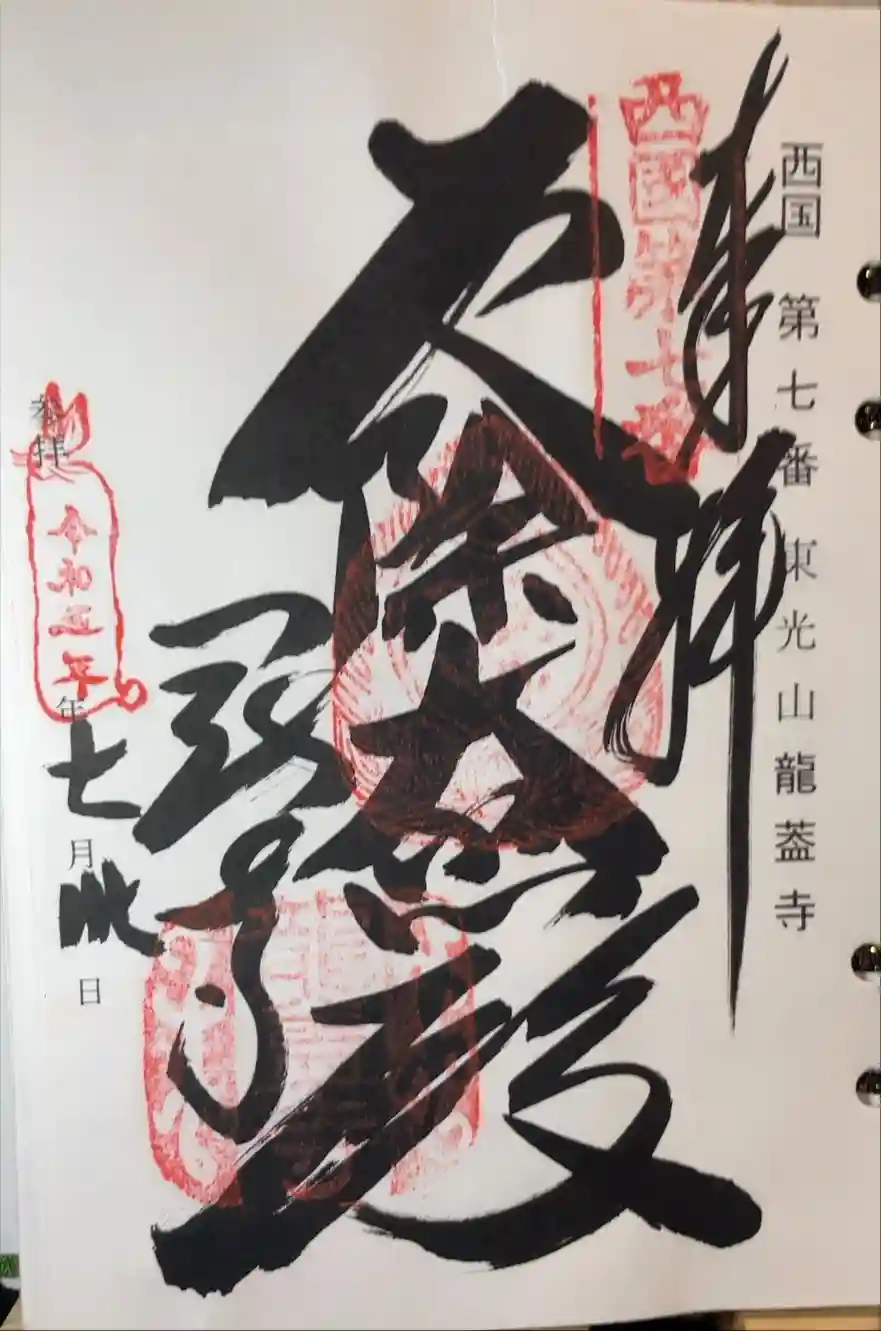 西国 第七番 東光山 龍蓋寺
奉拝
西國第七番
厄除大悲殿
奉拝
令和五年
年七月 日